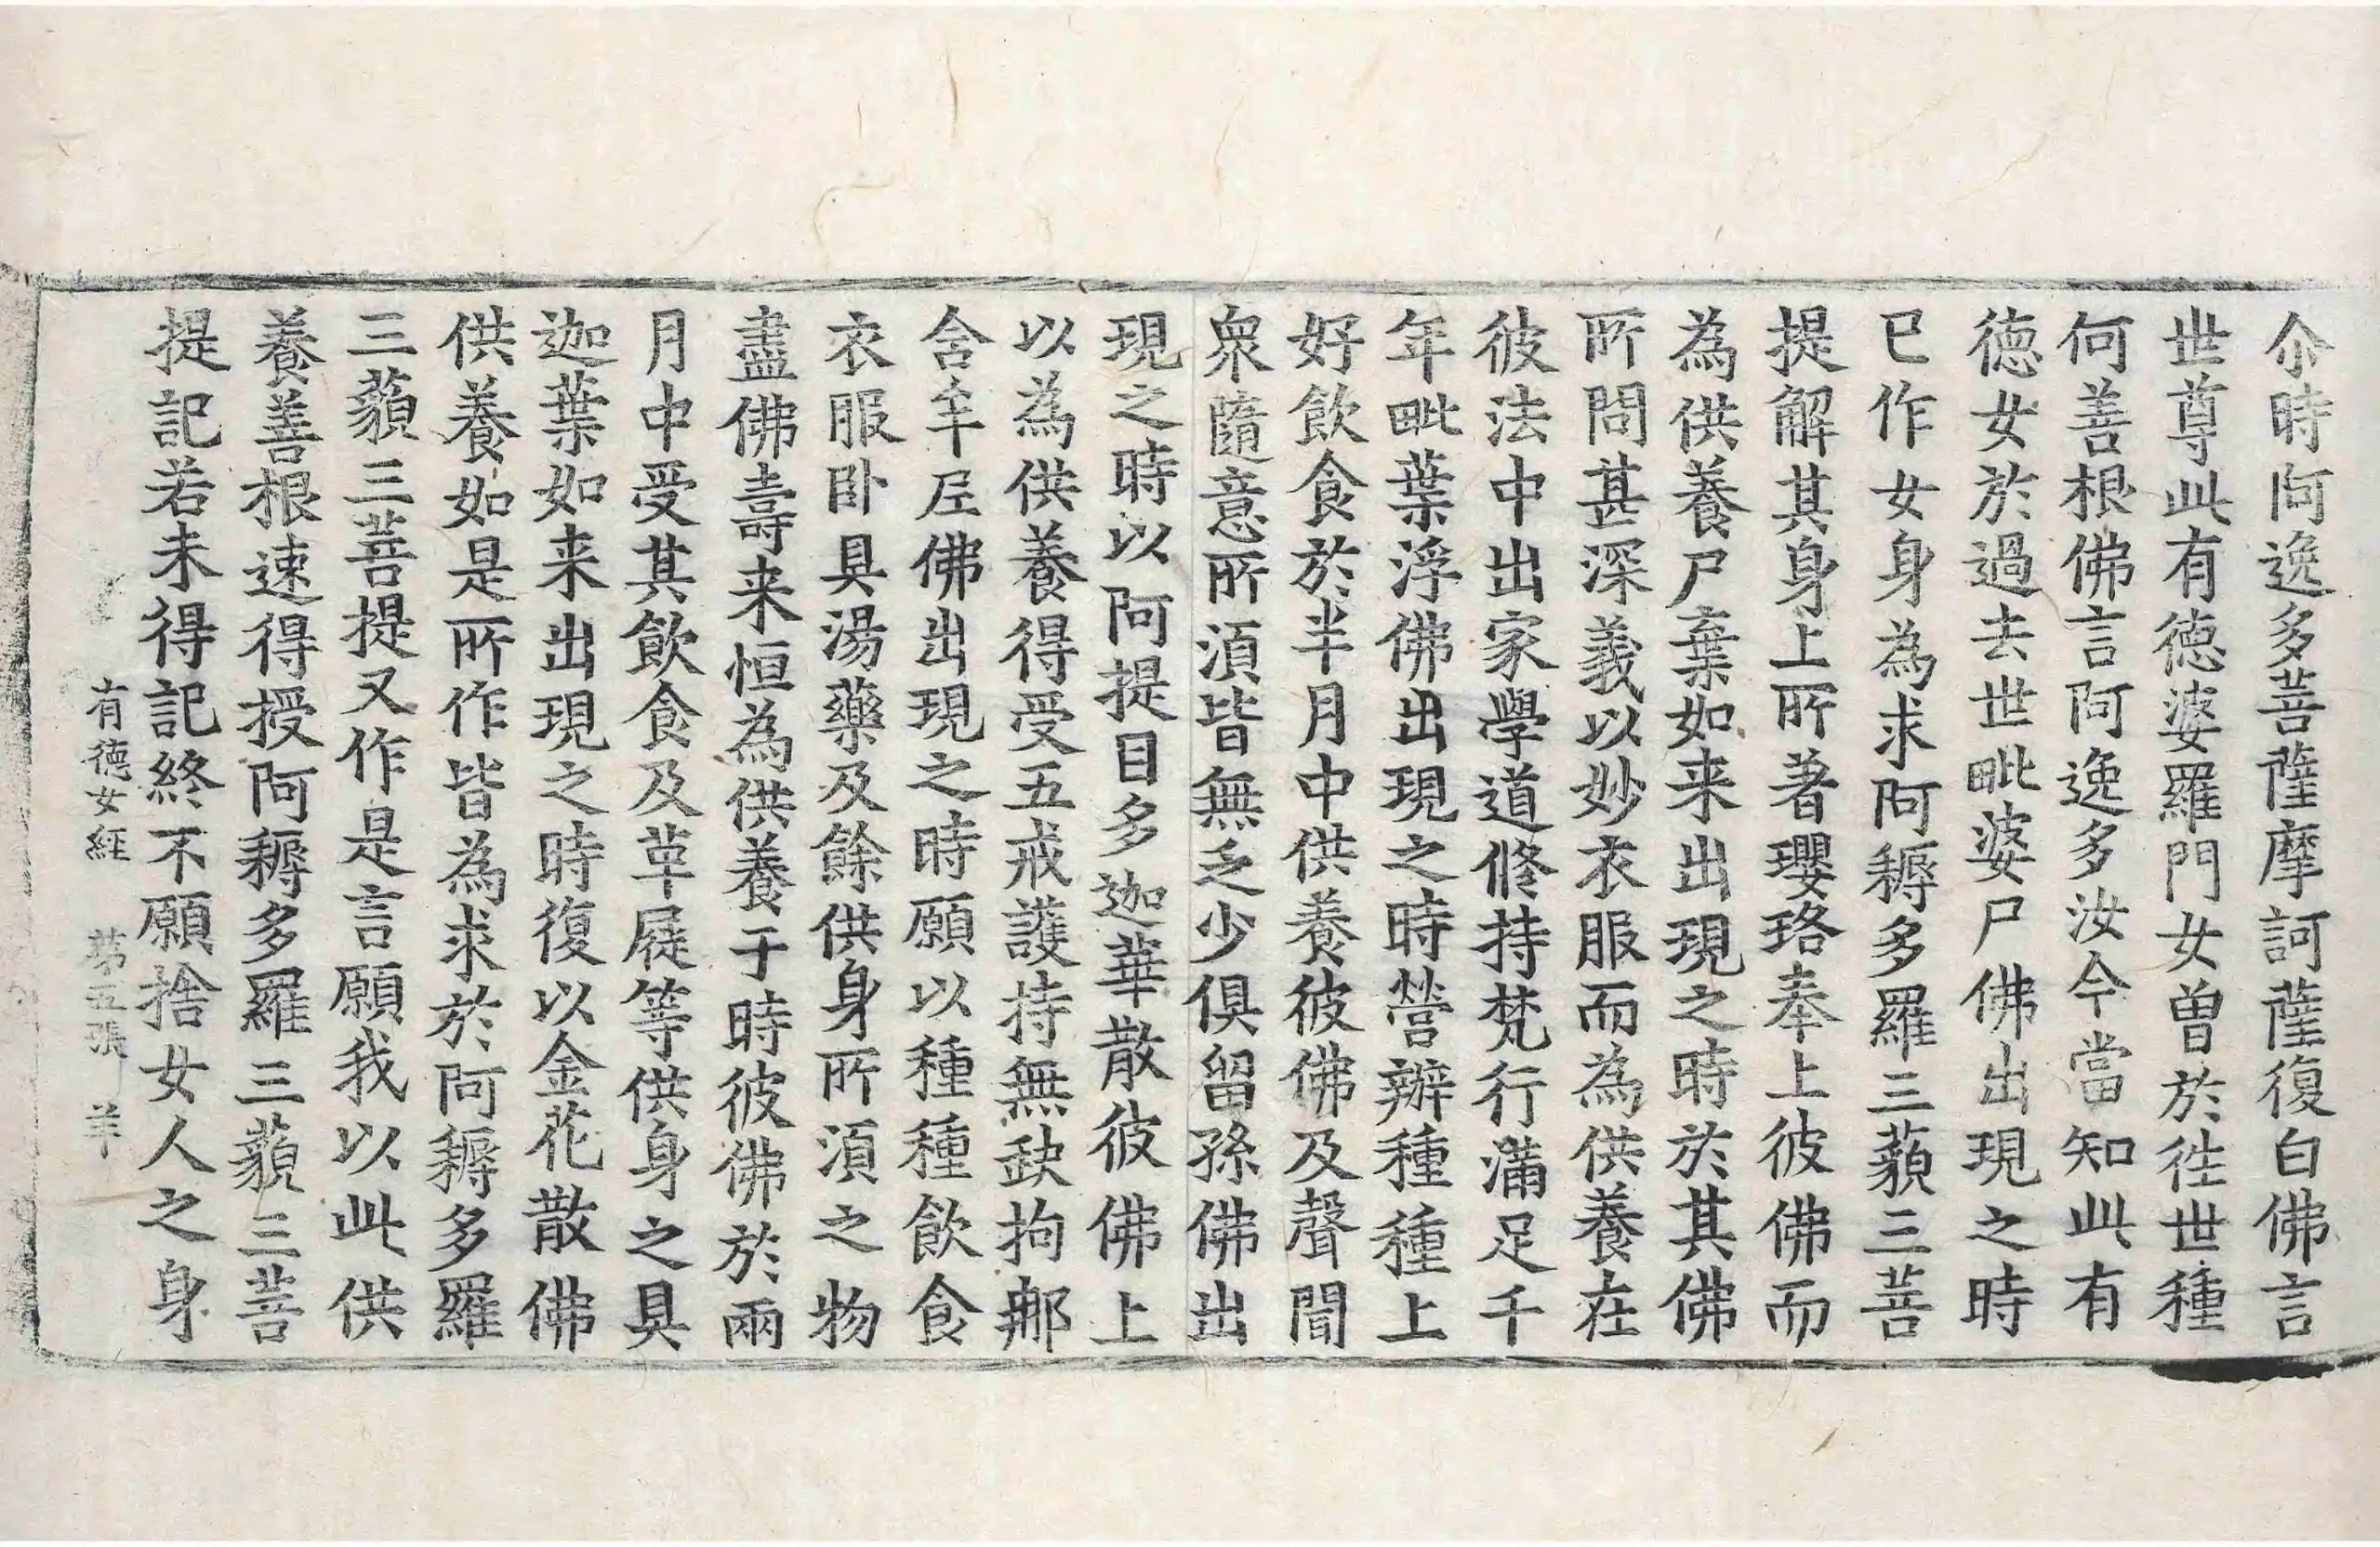 尒時阿逸多菩薩摩訶薩復白佛言
世尊此有德婆羅門女曾於往世種
何善根佛言阿逸多汝今當知此有
德女於過去世毗婆尸佛出現之時
已作女身為求阿耨多羅三藐三菩
提解其身上所著瓔珞奉上彼佛而
為供養尸棄如来出現之時於其佛
所問甚深義以妙衣服而為供養在
彼法中出家學道修持梵行滿足千
年毗葉浮佛出現之時營辦種種上
好飲食於半月中供養彼佛及聲聞
衆隨意所須皆無乏少俱留孫佛出
現之時以阿提目多迦華散彼佛上
以為供養得受五戒護持無缺拘那
舍牟尼佛出現之時願以種種飲食
衣服卧具湯藥及餘供身所須之物
盡佛壽来恒為供養于時彼佛於兩
月中受其飲食及革屣等供身之具
迦葉如来出現之時復以金花散佛
供養如是所作皆為求於阿耨多羅
三藐三菩提又作是言願我以此供
養善根速得授阿耨多羅三藐三菩
提記若未得記終不願捨女人之身
有德女經 第五張 羊